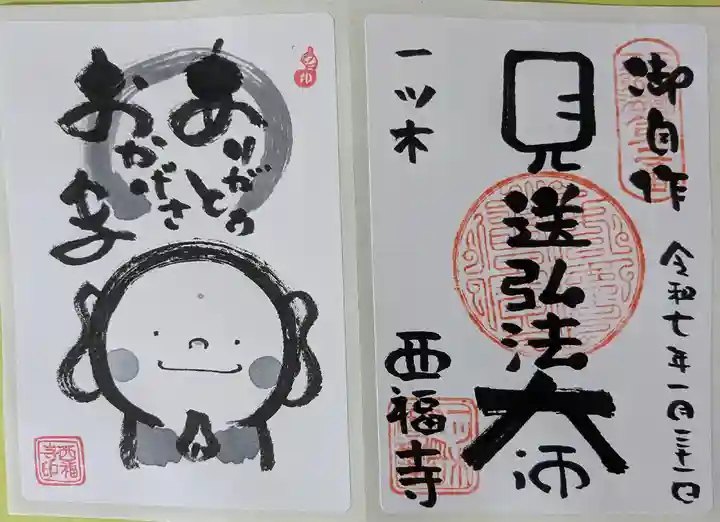 御自作
令和七年一月三十一日
見送弘法大師
一ツ木
西福寺
ありがとう
おかげさ
西福
寺印